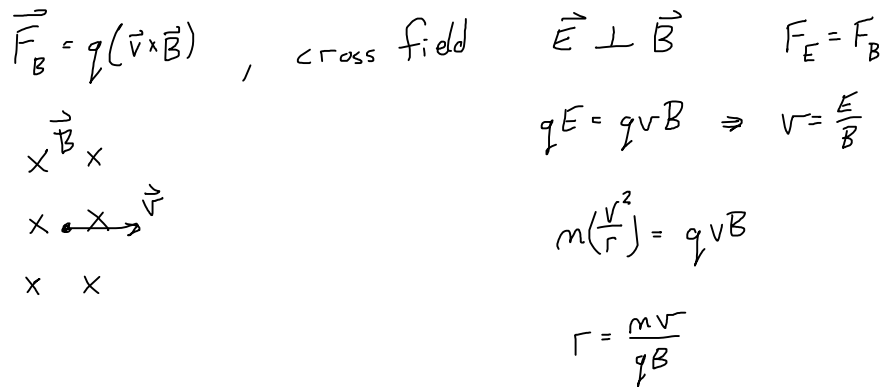 F⃗_B = q(v⃗×B⃗) , cross field E⃗ ⊥ B⃗ F_E = F_B
qE = qvB ⇒ v = E/B
B⃗
× ×
× × v⃗
× ×
m(v²/r) = qvB
r = mv/qB